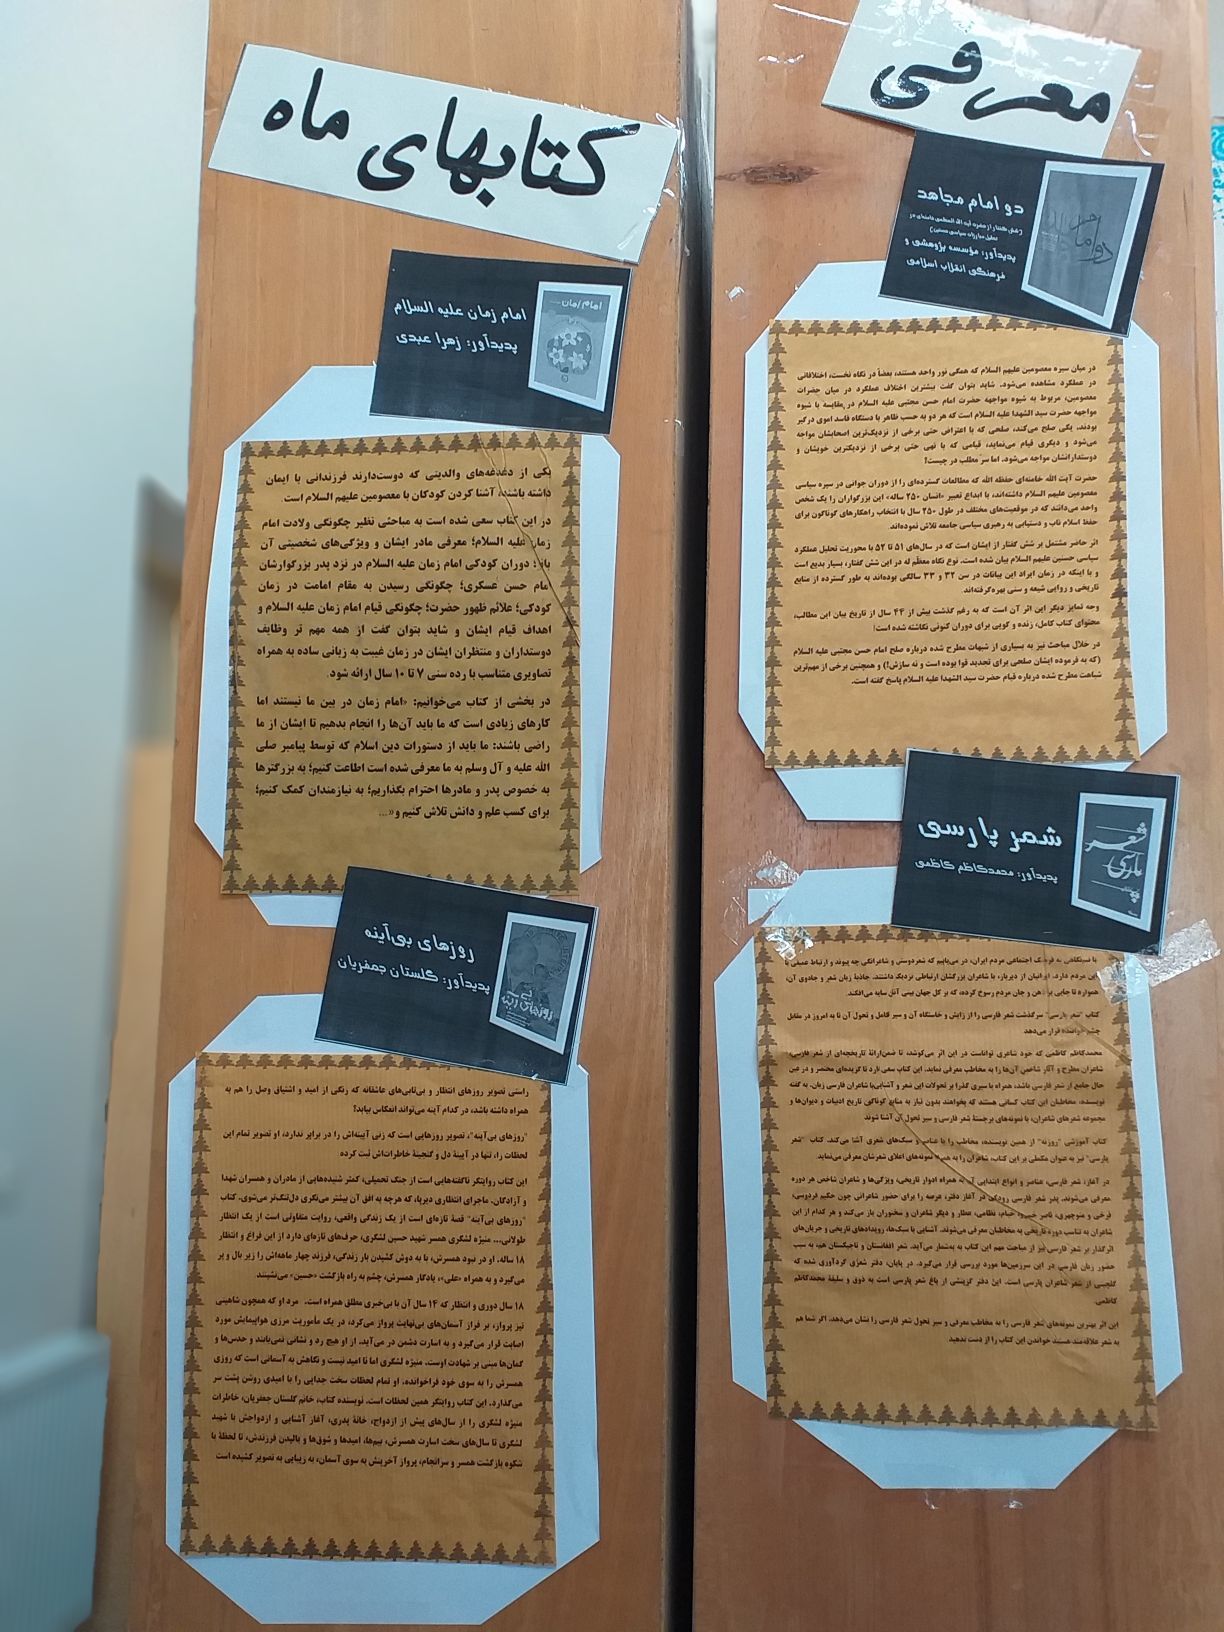 معرفی
کتابهای ماه
دو امام مجاهد
(شش گفتار از حضرت آیت الله العظمی خامنه‌ای در
تحلیل مبارزات سیاسی حسنین)
پدیدآور: مؤسسه پژوهشی و
فرهنگی انقلاب اسلامی
دو امام
در میان سیره معصومین علیهم السلام که همگی نور واحد هستند، بعضاً در نگاه نخست، اختلافاتی
در عملکرد مشاهده می‌شود. شاید بتوان گفت بیشترین اختلاف عملکرد در میان حضرات
معصومین، مربوط به شیوه مواجهه حضرت امام حسن مجتبی علیه السلام در مقایسه با شیوه
مواجهه حضرت سید الشهدا علیه السلام است که هر دو به حسب ظاهر با دستگاه فاسد اموی درگیر
بودند. یکی صلح می‌کند، صلحی که با اعتراض حتی برخی از نزدیک‌ترین اصحابشان مواجه
می‌شود و دیگری قیام می‌نماید، قیامی که با نهی حتی برخی از نزدیکترین خویشان و
دوستدارانشان مواجه می‌شود. اما سر مطلب در چیست؟
حضرت آیت الله خامنه‌ای حفظه الله که مطالعات گسترده‌ای را از دوران جوانی در سیره سیاسی
معصومین علیهم السلام داشته‌اند، با ابداع تعبیر «انسان ۲۵۰ ساله» این بزرگواران را یک شخص
واحد می‌دانند که در موقعیت‌های مختلف در طول ۲۵۰ سال با انتخاب راهکارهای گوناگون برای
حفظ اسلام ناب و دستیابی به رهبری سیاسی جامعه تلاش نموده‌اند
اثر حاضر مشتمل بر شش گفتار از ایشان است که در سال‌های ۵۱ تا ۵۲ با محوریت تحلیل عملکرد
سیاسی حسنین علیهم السلام بیان شده است. نوع نگاه معظّم له در این شش گفتار، بسیار بدیع است
و با اینکه در زمان ایراد این بیانات در سن ۳۲ و ۳۳ سالگی بوده‌اند به طور گسترده از منابع
تاریخی و روایی شیعه و سنی بهره‌گرفته‌اند
وجه تمایز دیگر این اثر آن است که به رغم گذشت بیش از ۴۴ سال از تاریخ بیان این مطالب،
محتوای کتاب کامل، زنده و گویی برای دوران کنونی نگاشته شده است!
در خلال مباحث نیز به بسیاری از شبهات مطرح شده درباره صلح امام حسن مجتبی علیه السلام
(که به فرموده ایشان صلحی برای تجدید قوا بوده است و نه سازش!) و همچنین برخی از مهم‌ترین
شباهت مطرح شده درباره قیام حضرت سید الشهدا علیه السلام پاسخ گفته است.
شعر پارسی
پدیدآور: محمدکاظم کاظمی
شعر
پارسی
اجتماعی مردم ایران، در می‌یابیم که شعردوستی و شاعرانگی چه پیوند و ارتباط عمیقی با
این مردم دارد. ایرانیان از دیرباز، با شاعران بزرگشان ارتباطی نزدیک داشتند. جاذبهٔ زبان شعر و جادوی آن،
همواره تا جایی بر ذهن و جان مردم رسوخ کرده، که بر کل جهان بینی آنان سایه می‌افکند.
کتاب "شعر پارسی" سرگذشت شعر فارسی را از زایش و خاستگاه آن و سیر تحول آن تا به امروز در مقابل
چشم خواننده قرار می‌دهد
محمدکاظم کاظمی که خود شاعری تواناست در این اثر می‌کوشد، تا ضمن ارائهٔ تاریخچه‌ای از شعر فارسی،
شاعران مطرح و آثار شاخص آن‌ها را به مخاطب معرفی نماید. این کتاب سعی دارد تا گزیده‌ای مختصر و در عین
حال جامع از شعر فارسی باشد، همراه با سیری گذرا بر تحولات این شعر و آشنایی‌با شاعران فارسی زبان. به گفته
نویسنده، مخاطبان این کتاب کسانی هستند که بخواهند بدون نیاز به منابع گوناگون تاریخ ادبیات و دیوان‌ها و
مجموعه شعرهای شاعران، با نمونه‌های برجستهٔ شعر فارسی و سیر تحول آن آشنا شوند
کتاب آموزشی "روزنه" از همین نویسنده، مخاطب را با عناصر و سبک‌های شعری آشنا می‌کند. کتاب "شعر
پارسی" نیز به عنوان مکملی بر این کتاب، شاعران را به همراه نمونه‌های اعلای شعرشان معرفی می‌نماید.
در آغاز، شعر فارسی، عناصر و انواع ابتدایی آن به همراه ادوار تاریخی، ویژگی‌ها و شاعران شاخص هر دوره
معرفی می‌شوند. پدر شعر فارسی رودکی در آغاز دفتر، عرصه را برای حضور شاعرانی چون حکیم فردوسی،
فرخی و منوچهری، ناصر خسرو، خیام، نظامی، عطار و دیگر شاعران و سخنوران باز می‌کند و هر کدام از این
شاعران به تناسب دوره تاریخی به مخاطبان معرفی می‌شوند. آشنایی با سبک‌ها، رویدادهای تاریخی و جریان‌های
اثرگذار بر شعر فارسی نیز از مباحث مهم این کتاب به به‌شمار می‌آید. شعر افغانستان و تاجیکستان هم، به سبب
حضور زبان فارسی در این سرزمین‌ها مورد بررسی قرار می‌گیرد. در پایان، دفتر شعری گردآوری شده که
گلچینی از شعر شاعران پارسی است. این دفتر گزینشی از باغ شعر پارسی است به ذوق و سلیقهٔ محمدکاظم
کاظمی
این اثر بهترین نمونه‌های شعر فارسی را به مخاطب معرفی و سیر تحول شعر فارسی را نشان می‌دهد. اگر شما هم
به شعر علاقه‌مند هستید خواندن این کتاب را از دست ندهید
امام زمان علیه السلام
پدیدآور: زهرا عبدی
امام زمان
یکی از دغدغه‌های والدینی که دوست‌دارند فرزندانی با ایمان
داشته باشند، آشنا کردن کودکان با معصومین علیهم السلام است.
در این کتاب سعی شده است به مباحثی نظیر چگونگی ولادت امام
زمان علیه السلام؛ معرفی مادر ایشان و ویژگی‌های شخصیتی آن
بانو؛ دوران کودکی امام زمان علیه السلام در نزد پدر بزرگوارشان
امام حسن عسکری؛ چگونگی رسیدن به مقام امامت در زمان
کودکی؛ علائم ظهور حضرت؛ چگونگی قیام امام زمان علیه السلام و
اهداف قیام ایشان و شاید بتوان گفت از همه مهم تر وظایف
دوستداران و منتظران ایشان در زمان غیبت به زبانی ساده به همراه
تصاویری متناسب با رده سنی ۷ تا ۱۰ سال ارائه شود.
در بخشی از کتاب می‌خوانیم: «امام زمان در بین ما نیستند اما
کارهای زیادی است که ما باید آن‌ها را انجام بدهیم تا ایشان از ما
راضی باشند: ما باید از دستورات دین اسلام که توسط پیامبر صلی
الله علیه و آل وسلم به ما معرفی شده است اطاعت کنیم؛ به بزرگترها
به خصوص پدر و مادرها احترام بگذاریم؛ به نیازمندان کمک کنیم؛
برای کسب علم و دانش تلاش کنیم و»...
روزهای بی‌آینه
پدیدآور: گلستان جعفریان
روزهای بی آینه
راستی تصویر روزهای انتظار و بی‌تابی‌های عاشقانه که رنگی از امید و اشتیاق وصل را هم به
همراه داشته باشد، در کدام آینه می‌تواند انعکاس بیابد؟
"روزهای بی‌آینه"، تصویر روزهایی است که زنی آیینه‌اش را در برابر ندارد، او تصویر تمام این
لحظات را، تنها در آیینهٔ دل و گنجینهٔ خاطرات‌اش ثبت کرده
این کتاب روایتگر ناگفته‌هایی است از جنگ تحمیلی، کمتر شنیده‌هایی از مادران و همسران شهدا
و آزادگان. ماجرای انتظاری دیرپا، که هرچه به افق آن بیشتر می‌نگری دل‌تنگ‌تر می‌شوی. کتاب
"روزهای بی‌آینه" قصهٔ تازه‌ای است از یک زندگی واقعی، روایت متفاوتی است از یک انتظار
طولانی... منیژه لشگری همسر شهید حسین لشگری، حرف‌های تازه‌ای دارد از این فراغ و انتظار
۱۸ ساله. او در نبود همسرش، با به دوش کشیدن بار زندگی، فرزند چهار ماهه‌اش را زیر بال و پر
می‌گیرد و به همراه «علی»، یادگار همسرش، چشم به راه بازگشت «حسین» می‌نشیند.
۱۸ سال دوری و انتظار که ۱۴ سال آن با بی‌خبری مطلق همراه است. مرد او که همچون شاهینی
تیز پرواز، بر فراز آسمان‌های بی‌نهایت پرواز می‌کرد، در یک مأموریت مرزی هواپیمایش مورد
اصابت قرار می‌گیرد و به اسارت دشمن در می‌آید. از او هیچ رد و نشانی نمی‌یابند و حدس‌ها و
گمان‌ها مبنی بر شهادت اوست. منیژه لشگری اما نا امید نیست و نگاهش به آسمانی است که روزی
همسرش را به سوی خود فراخوانده. او تمام لحظات سخت جدایی را با امیدی روشن پشت سر
می‌گذارد. این کتاب روایتگر همین لحظات است. نویسنده کتاب، خانم گلستان جعفریان، خاطرات
منیژه لشگری را از سال‌های پیش از ازدواج، خانهٔ پدری، آغاز آشنایی و ازدواجش با شهید
لشگری تا سال‌های سخت اسارت همسرش، بیم‌ها، امیدها و شوق‌ها و بالیدن فرزندش، تا لحظهٔ با
شکوه بازگشت همسر و سرانجام، پرواز آخرینش به سوی آسمان، به زیبایی به تصویر کشیده است